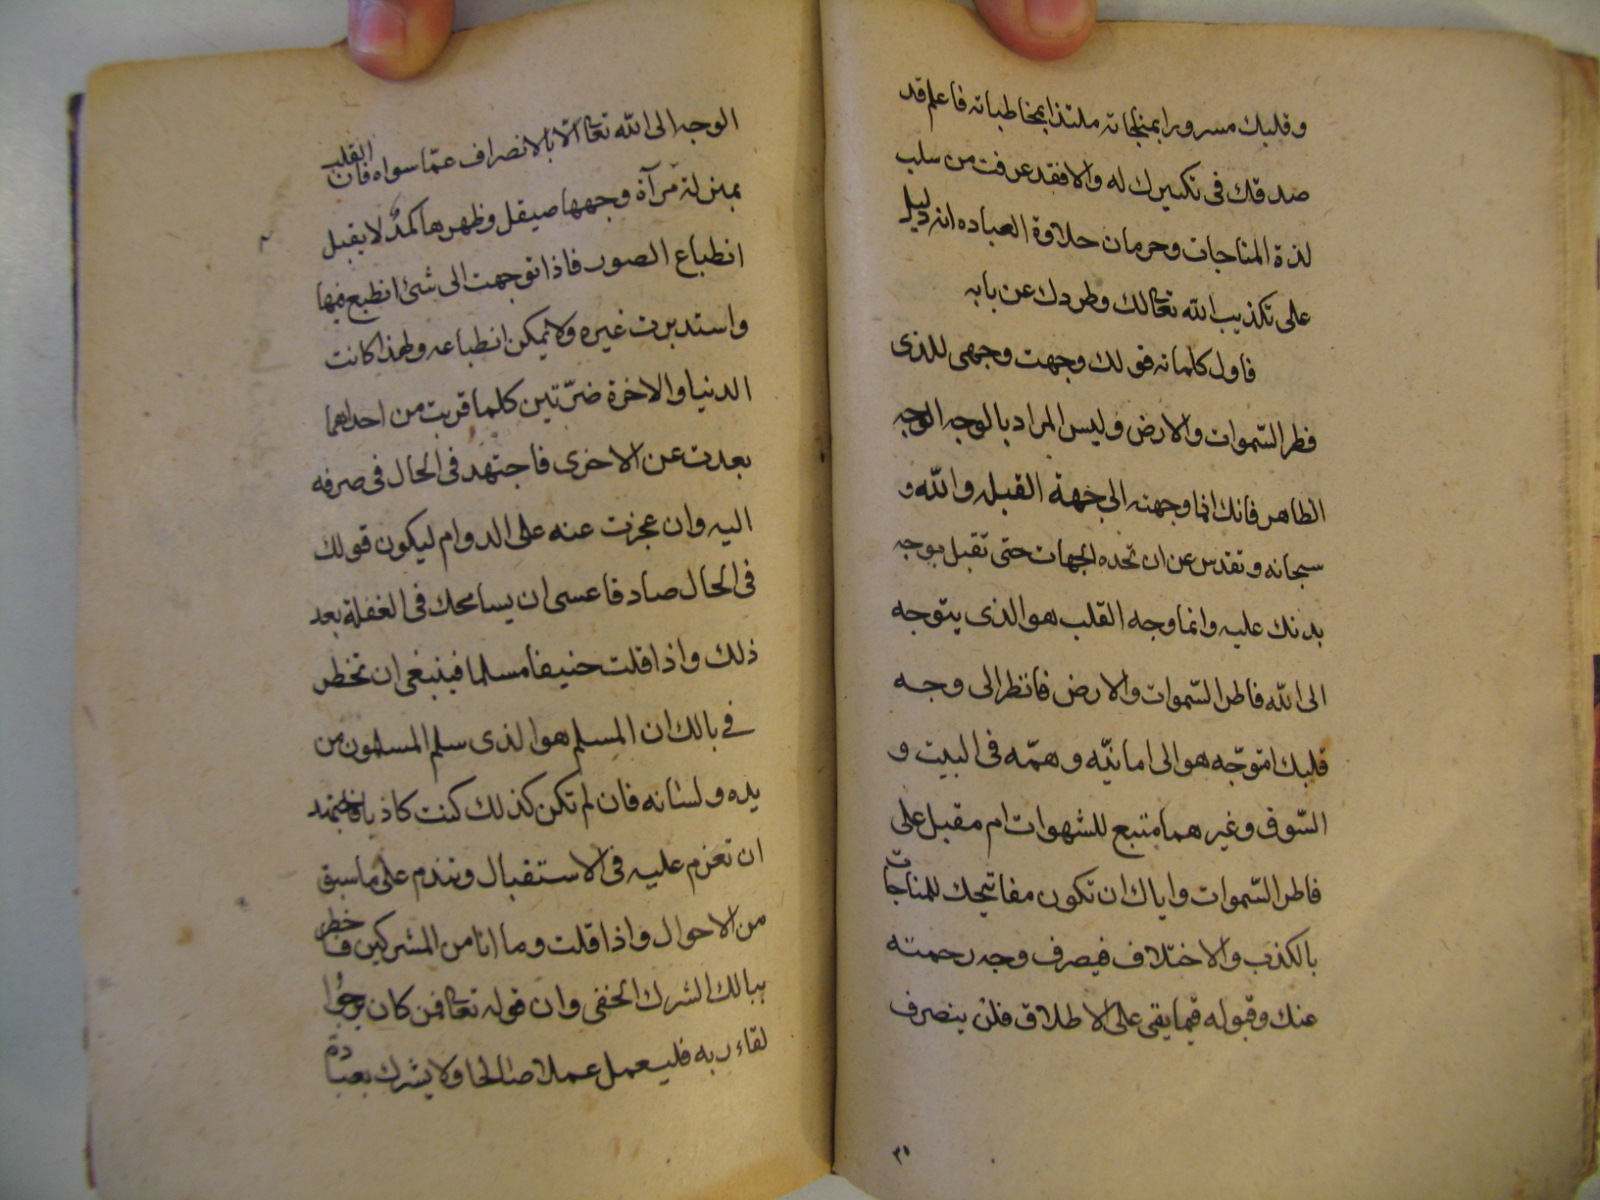 وقلبك مسرورا بمناجاته ملتذا بمخاطباته فاعلم قد
صدقك فى تكبيرك له والا فقد عرفت من سلب
لذة المناجات وحرمان حلاوة العباده انه دليل
على تكذيب الله تعالى لك وطردك عن بابه
فاول كلماته قولك وجهت وجهى للذى
فطر السّموات والارض وليس المراد بالوجه الوجه
الظاهر فانك انما وجهته الى جهة القبله والله و
سبحانه وتقدس عن ان تحده الجهات حتى تقبل بوجه
بدنك عليه وانما وجه القلب هو الذى يتوجه
الى الله فاطر السّموات والارض فانظر الى وجه
قلبك امتوجّه هو الى امانيّه وهمّه فى البيت و
السّوق وغيرهما متبع للشهوات ام مقبل على
فاطر السّموات واياك ان تكون مفاتيحك للمناجات
بالكذب والاختلاف فيصرف وجه رحمته
عنك وقبوله فيما بقى على الاطلاق فلن ينصرف
٣٥
الوجه الى الله تعالى الّا بالانصراف عمّا سواه فان القلب
بمنزلة مرآة وجهها صيقل وظهرها كمدٌ لا يقبل
انطباع الصور فاذا توجهت الى شئ انطبع فيها
واستدبرت غيره ولا يمكن انطباعه ولهذا كانت
الدنيا والاخرة ضرّتين كلما قربت من احداهما
بعدت عن الاخرى فاجتهد فى الحال فى صرفه
اليه وان عجزت عنه على الدوام ليكون قولك
فى الحال صادقا عسى ان يسامحك فى الغفلة بعد
ذلك واذا قلت حنيفا مسلما فينبغى ان تخطر
فى بالك ان المسلم هو الذى سلم المسلمون من
يده ولسانه فان لم تكن كذلك كنت كاذبا فاجتهد
ان تعزم عليه فى الاستقبال وتندم على ما سبق
من الاحوال واذا قلت وما انا من المشركين فاخطر
ببالك الشرك الخفى وان قوله تعالى فمن كان يرجوا
لقاء ربه فليعمل عملا صالحا ولا يشرك بعبادة